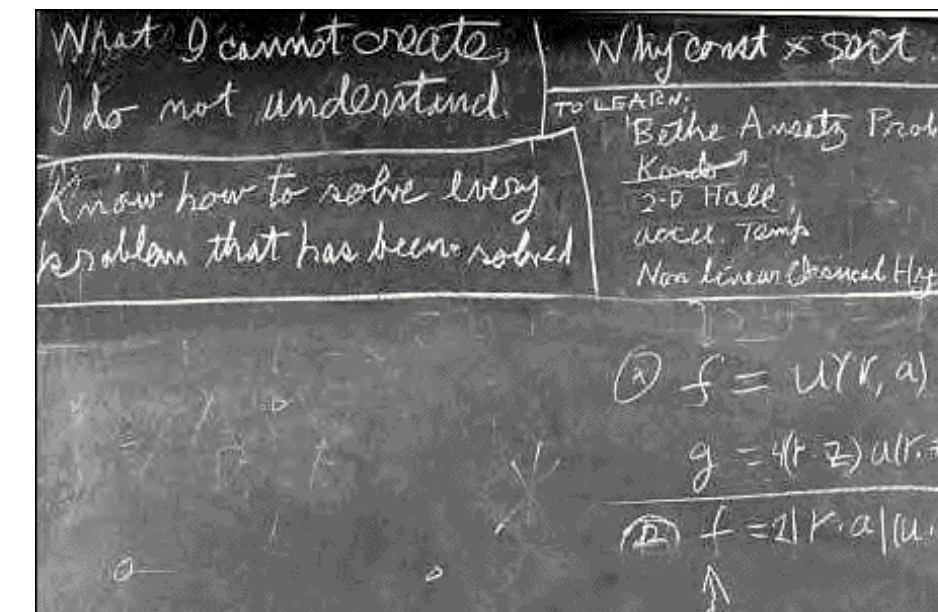 What I cannot create,
I do not understand.
Know how to solve every
problem that has been solved
Why const × sort .
TO LEARN:
Bethe Ansatz Prob
Kondo
2-D Hall
accel. Temp
Non linear Classical Hy
f = u(r, a)
g = 4(r z) u(r.
f = 2|r.a|(u.